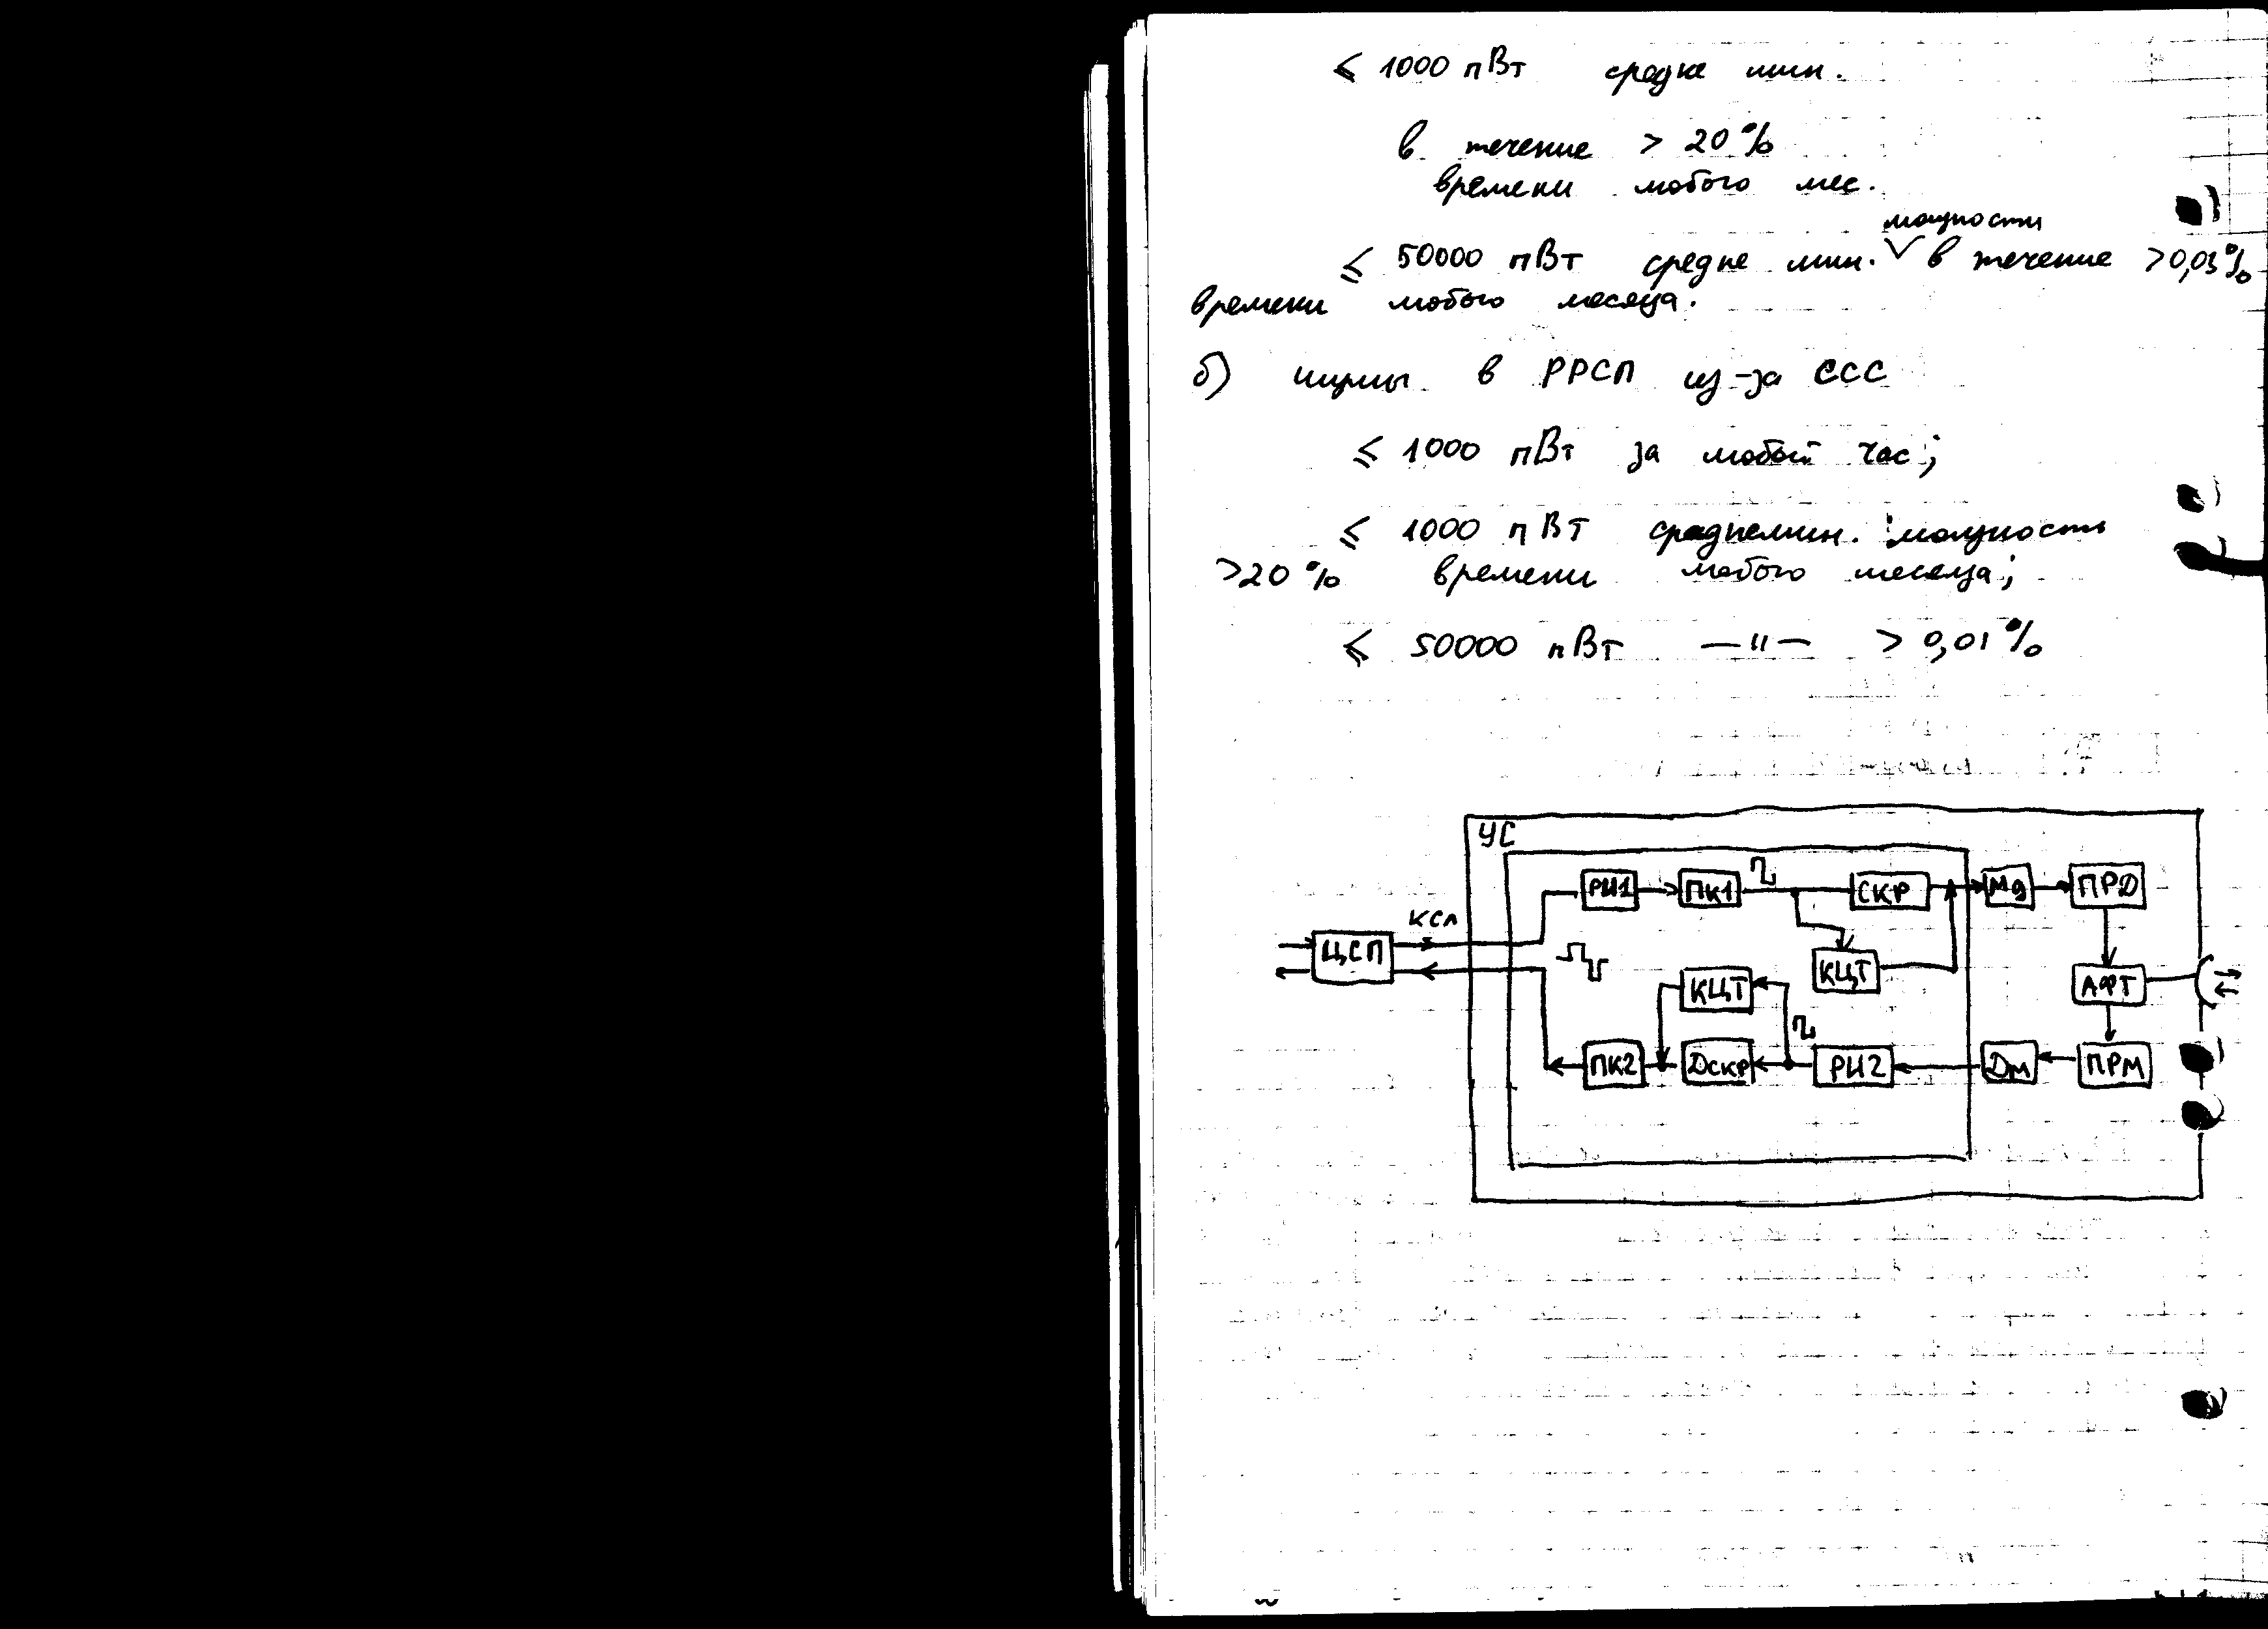 ≤ 1000 пВт средне мин.
в течение > 20 %
времени любого мес.
мощности
≤ 50000 пВт средне мин. ✓ в течение >0,03%
времени любого месяца.
б) шумы в РРСП из-за ССС
≤ 1000 пВт за любой час;
≤ 1000 пВт среднемин. мощность
>20 % времени любого месяца;
≤ 50000 пВт —"— > 0,01 %
УС
РИ1 ПК1 СКР Мд ПРД
КСЛ
ЦСП КЦТ КЦТ АФТ
ПК2 Дскр РИ2 Дм ПРМ